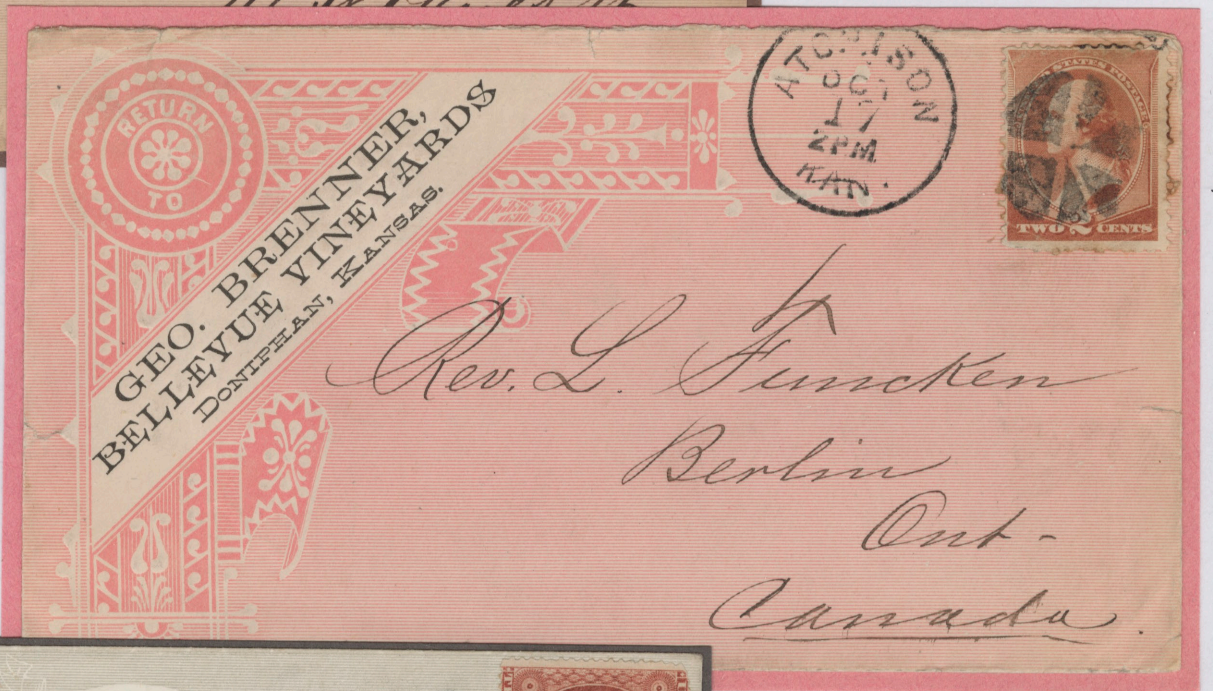 RETURN
TO
GEO. BRENNER,
BELLEVUE VINEYARDS
DONIPHAN, KANSAS.
ATCHISON
OCT
17
2PM.
KAN.
UNITED STATES POSTAGE
TWO 2 CENTS
Rev. L. Funcken
Berlin
Ont-
Canada.